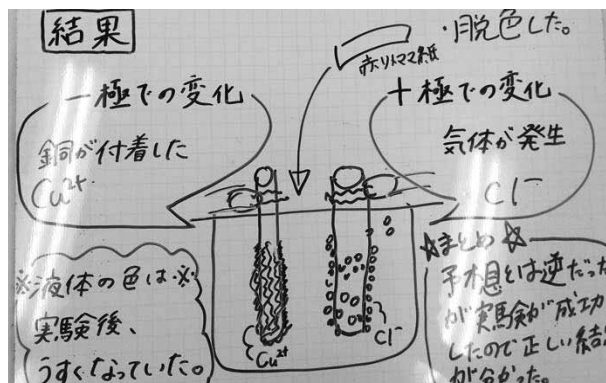 結果
・脱色した。
赤リトマス紙
一極での変化
銅が付着した
Cu²⁺
十極での変化
気体が発生
Cl⁻
※液体の色は※
実験後、
うすくなっていた。
Cu²⁺
Cl⁻
☆まとめ☆
予想とは逆だった
が実験が成功
したので正しい結
が分かった。